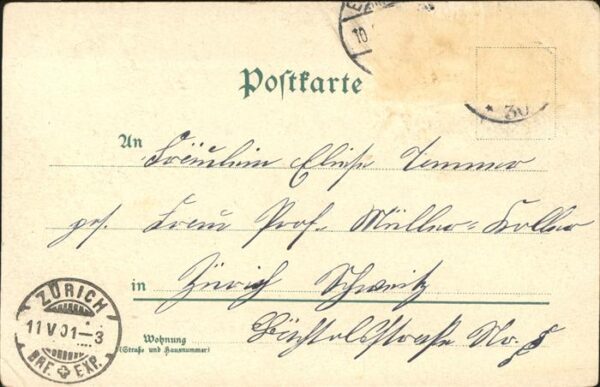 Postkarte
30
An Fräulein Eliese Temmer
Frau Prof. Müller-Koller
in Zürich Schweiz
Wohnung
(Straße und Hausnummer)
Bächtoldstraße No.
ZÜRICH
11 V 01-3
BRF. EXP.